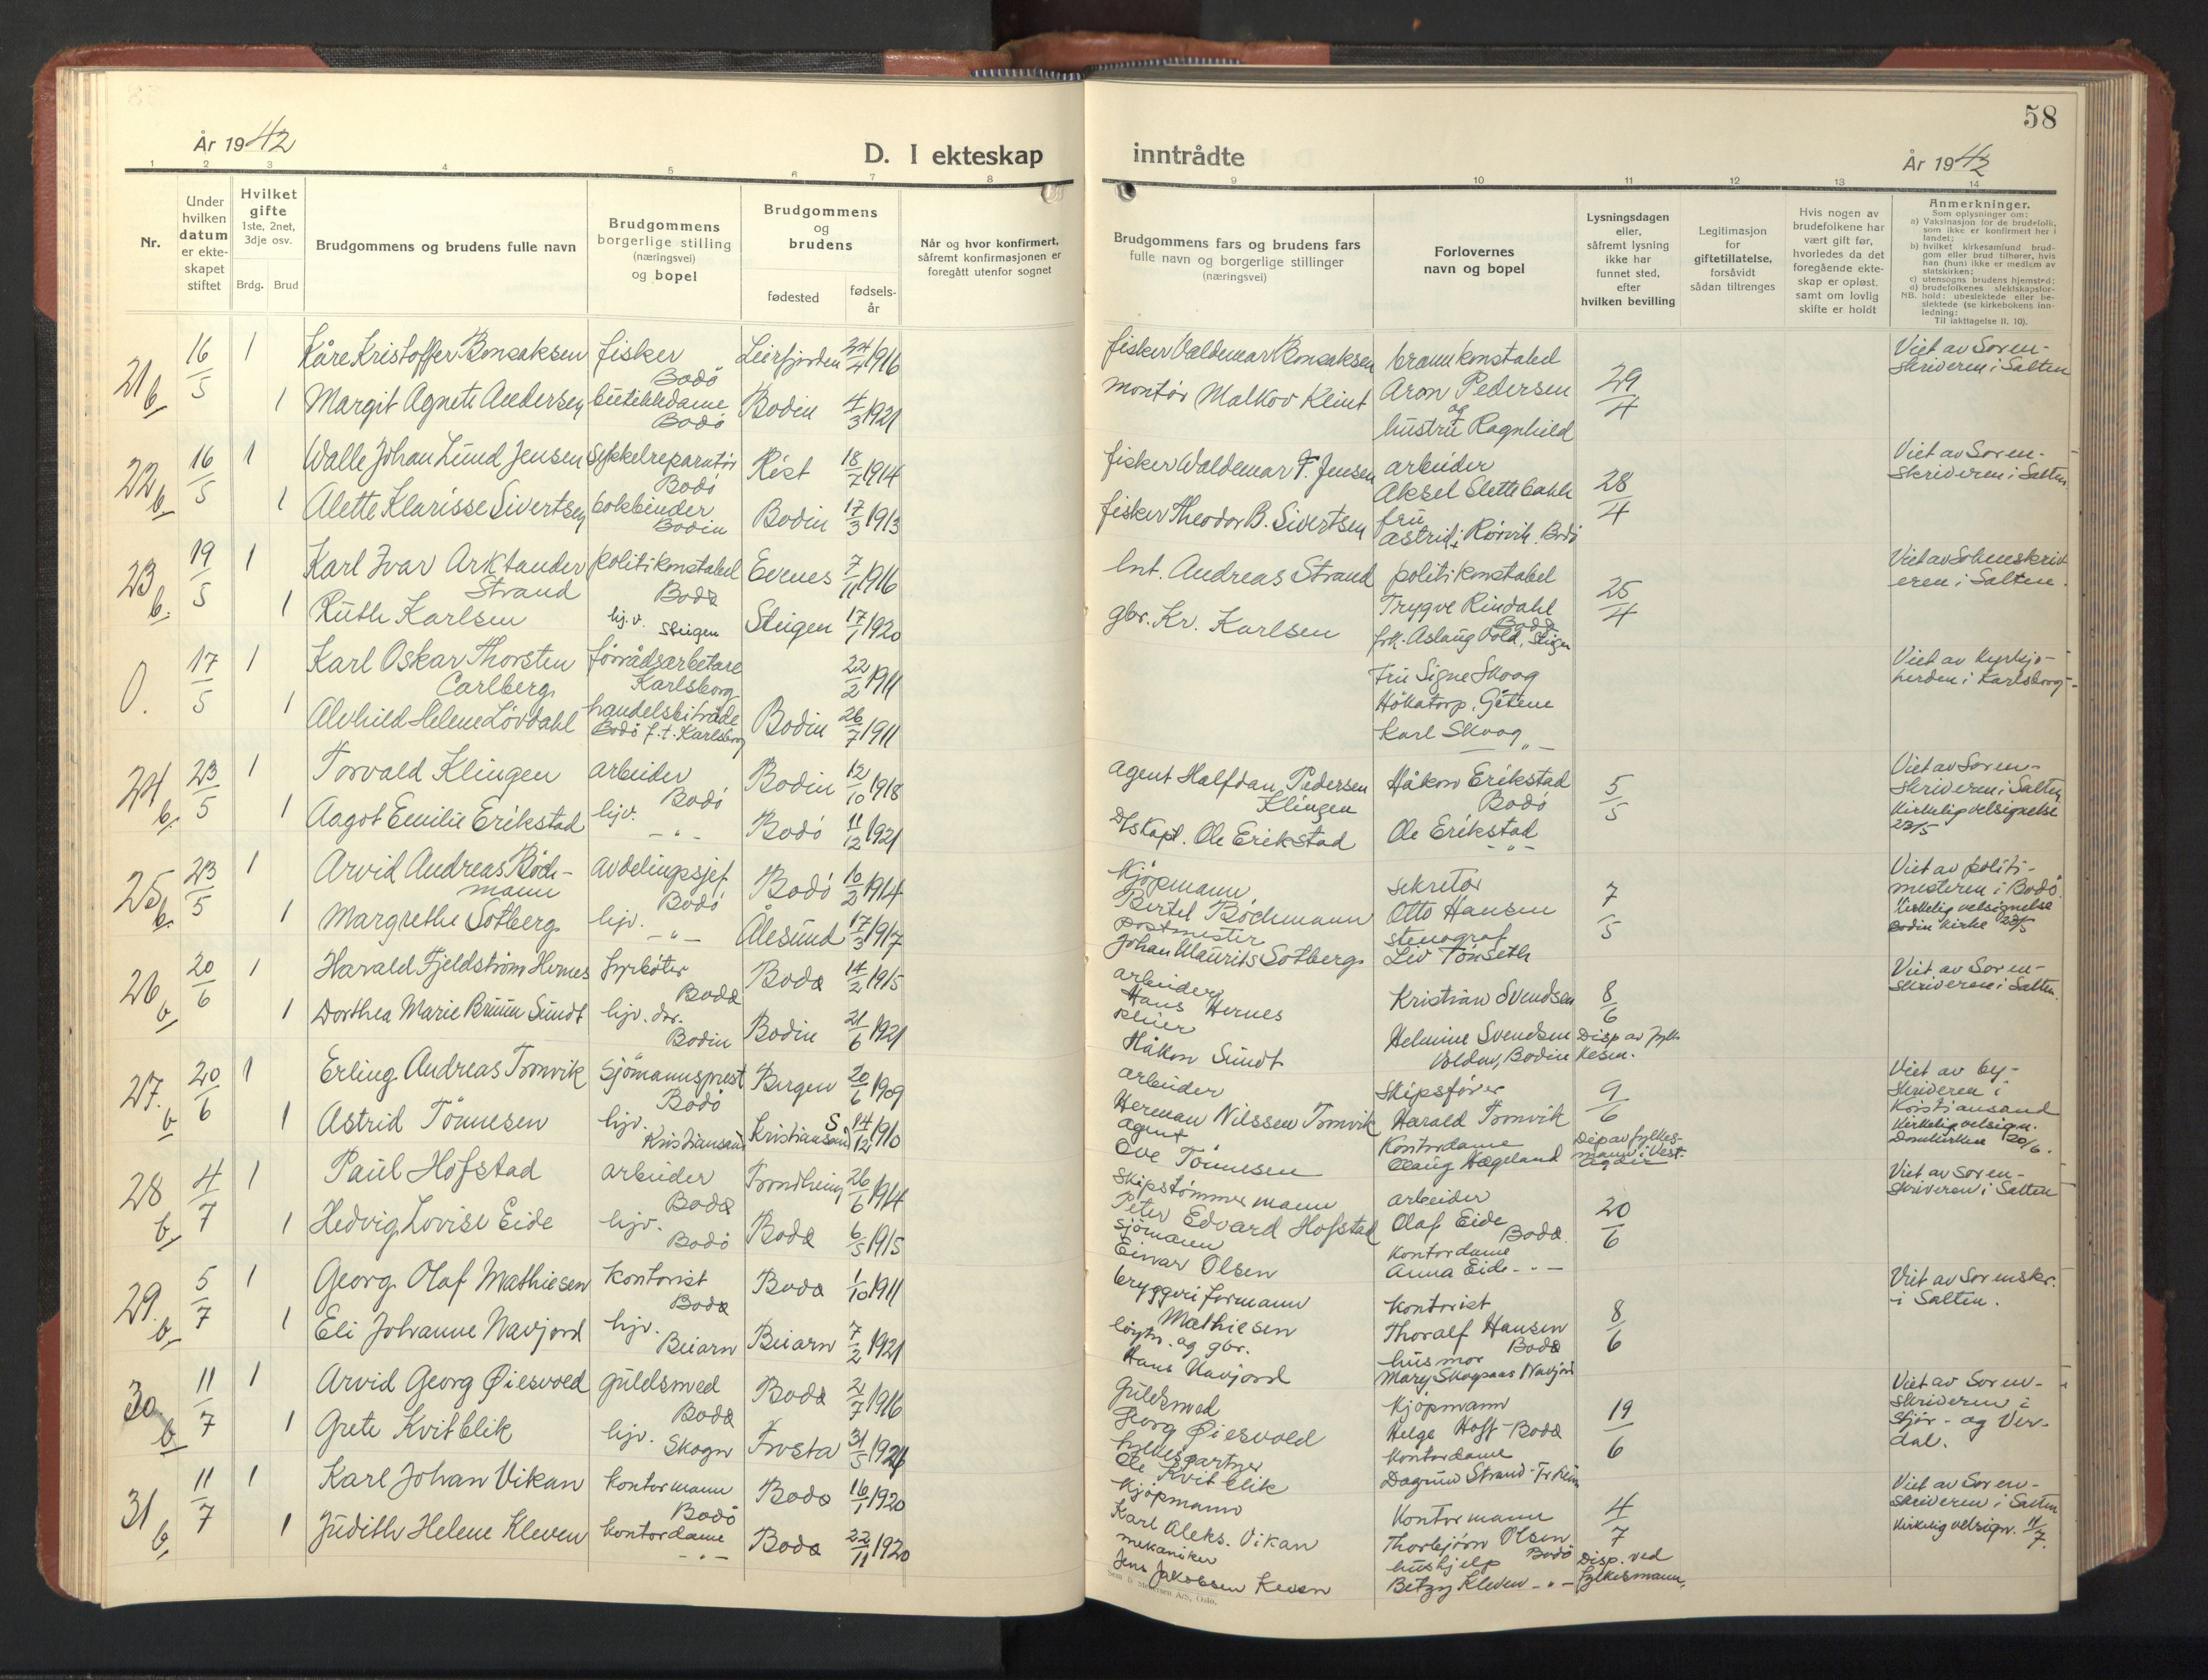 58
År 1942
D. I ekteskap inntrådte
År 1942
1 2 3 4 5 6 7 8 9 10 11 12 13 14
Nr.
Under hvilken datum er ekteskapet stiftet
Hvilket gifte
1ste, 2net, 3dje osv.
Brdg. Brud
Brudgommens og brudens fulle navn
Brudgommens borgerlige stilling (næringsvei) og bopel
Brudgommens og brudens
fødested
fødselsår
Når og hvor konfirmert, såfremt konfirmasjonen er foregått utenfor sognet
Brudgommens fars og brudens fars fulle navn og borgerlige stillinger (næringsvei)
Forlovernes navn og bopel
Lysningsdagen eller, såfremt lysning ikke har funnet sted, efter hvilken bevilling
Legitimasjon for giftetillatelse, forsåvidt sådan tiltrenges
Hvis nogen av brudefolkene har vært gift før, hvorledes da det foregående ekteskap er opløst, samt om lovlig skifte er holdt
Anmerkninger.
Som oplysninger om:
a) Vaksinasjon for de brudefolk, som ikke er konfirmert her i landet;
b) hvilket kirkesamfund brudgom eller brud tilhører, hvis han (hun) ikke er medlem av statskirken;
c) utensogns brudens hjemsted;
d) brudefolkenes slektskapsforhold: ubeslektede eller beslektede (se kirkebokens innledning:
NB. Til iakttagelse II. 10).
21 b/ 16/5 1 Kåre Kristoffer Bonsaksen fisker Bodö Leirfjorden 24/4 1916 fisker Valdemar Bonsaksen brannkonstabel Aron Pedersen og 29/4 Viet av Sorenskriveren i Salten
1 Margit Agnete Andersen butikkdame Bodö Bodin 4/3 1921 montör Malkov Klint hustru Ragnhild
22 b/ 16/5 1 Walle Johan Lund Jensen Sykkelreparatör Bodö Röst 18/7 1914 fisker Waldemar F. Jensen arbeider Aksel Slettbakk 28/4 Viet av Sorenskriveren i Salten
1 Alette Klarisse Sivertsen bokbinder Bodin Bodin 17/3 1913 fisker Theodor B. Sivertsen fru Astrid Rörvik. Bodö
23 b. 19/5 1 Karl Ivar Arktander Strand politikonstabel Bodö Evenes 7/11 1916 lnt. Andreas Strand politikonstabel Trygve Rindahl Bodö 25/4 Viet av Sorenskriveren i Salten.
1 Ruth Karlsen hj.v. Steigen Steigen 17/1 1920 gbr. Kr. Karlsen frk. Aslaug Vold, Steigen
0. 17/5 1 Karl Oskar Thorsten Carlberg förrådsarbetare Karlsborg 22/2 1911 Fru Signe Skoog Hökatorp, Götene Viet av Kyrkoherden i Karlsborg
1 Alvhild Helene Lövdahl handelsbiträde Bodö f.t. Karlsborg Bodin 26/7 1911 Karl Skoog – „ –
24 b/ 23/5 1 Torvald Klingen arbeider Bodö Bodin 12/10 1918 agent Halfdan Pedersen Klingen Håkon Erikstad Bodö 5/5 Viet av Sorenskriveren i Salten. Kirkelig velsignelse 23/5
1 Aagot Emilie Erikstad hjv. – „ – Bodö 11/12 1921 D/Skapt. Ole Erikstad Ole Erikstad – „ –
25 b. 23/5 1 Arvid Andreas Bödmann avdelingssjef Bodö Bodö 10/2 1914 Kjöpmann Bertel Böchmann sekretær Otto Hansen 7/5 Viet av politimesteren i Bodö. Kirkelig velsignelse Bodin Kirke 23/5
1 Margrethe Sotberg hjv. – „ – Ålesund 17/3 1917 postmester Johan Maurits Sotberg stenograf Liv Tönseth
26 b/ 20/6 1 Harald Fjeldström Hernes fyrböter Bodö Bodö 14/2 1915 arbeider Hans Hernes Kristian Svendsen 8/6 Viet av Sorenskriveren i Salten.
1 Dorthea Marie Bruun Sundt hjv. dtr. Bodin Bodin 21/6 1921 Håkon Sundt Helmine Svendsen Volden, Bodin Disp av fylkesm.
27. b 20/6 1 Erling Andreas Tronvik Sjömannsprest Bodö Bergen 20/6 1909 arbeider Herman Nilssen Tronvik Skipsförer Harald Tronvik 9/6 Viet av byskriveren i Kristiansand Kirkelig velsign. Domkirken 20/6.
1 Astrid Tönnesen hjv. Kristiansand Kristiansand S 14/12 1910 agent Ove Tönnesen Kontordame Olaug Hægeland Disp av fylkesmann i Vest-Agder
28 b/ 4/7 1 Paul Hofstad arbeider Bodö Trondheim 26/6 1914 Skipstömmermann Peter Edvard Hofstad arbeider Olaf Eide Bodö. 20/6 Viet av Sorenskriveren i Salten
1 Hedvig Lovise Eide hjv. Bodö Bodö 6/5 1915 sjömann Einar Olsen Kontordame Anna Eide – „ –
29. b/ 5/7 1 Georg Olaf Mathiesen Kontorist Bodö Bodö 1/10 1911 bryggeriformann Mathiesen Kontorist Thoralf Hansen Bodö 8/6 Viet av Sorenskr. i Salten.
1 Eli Johanne Navjord hjv. Beiarn Beiarn 7/2 1921 löytn. og gbr. Hans Navjord husmor Mary Skogsaas Navjord
30 b/ 11/7 1 Arvid Georg Øiesvold gullsmed Bodö Bodö 2/7 1916 Gullsmed Georg Øiesvold Kjöpmann Helge Hoff – Bodö 19/6 Viet av Sorenskriveren i Stjör- og Verdal.
1 Grete Kvitblik hjv. Skogn Frosta 31/5 1921 fylkesgartner Ole Kvitblik Kontordame Dagrun Strand – Tr.heim
31 b, 11/7 1 Karl Johan Vikan Kontormann Bodö Bodö 16/1 1920 Kjöpmann Karl Aleks. Vikan Kontormann Thorbjörn Olsen Bodö 4/7 Viet av Sorenskriveren i Salten Kirkelig velsign. 11/7.
1 Judith Helene Kleven kontordame – „ – Bodö 22/11 1920 mekaniker Jens Jakobsen Kleven hushjelp Betzy Kleven – „ – Disp. ved fylkesmann.
Sem & Stenersen A/S, Oslo.